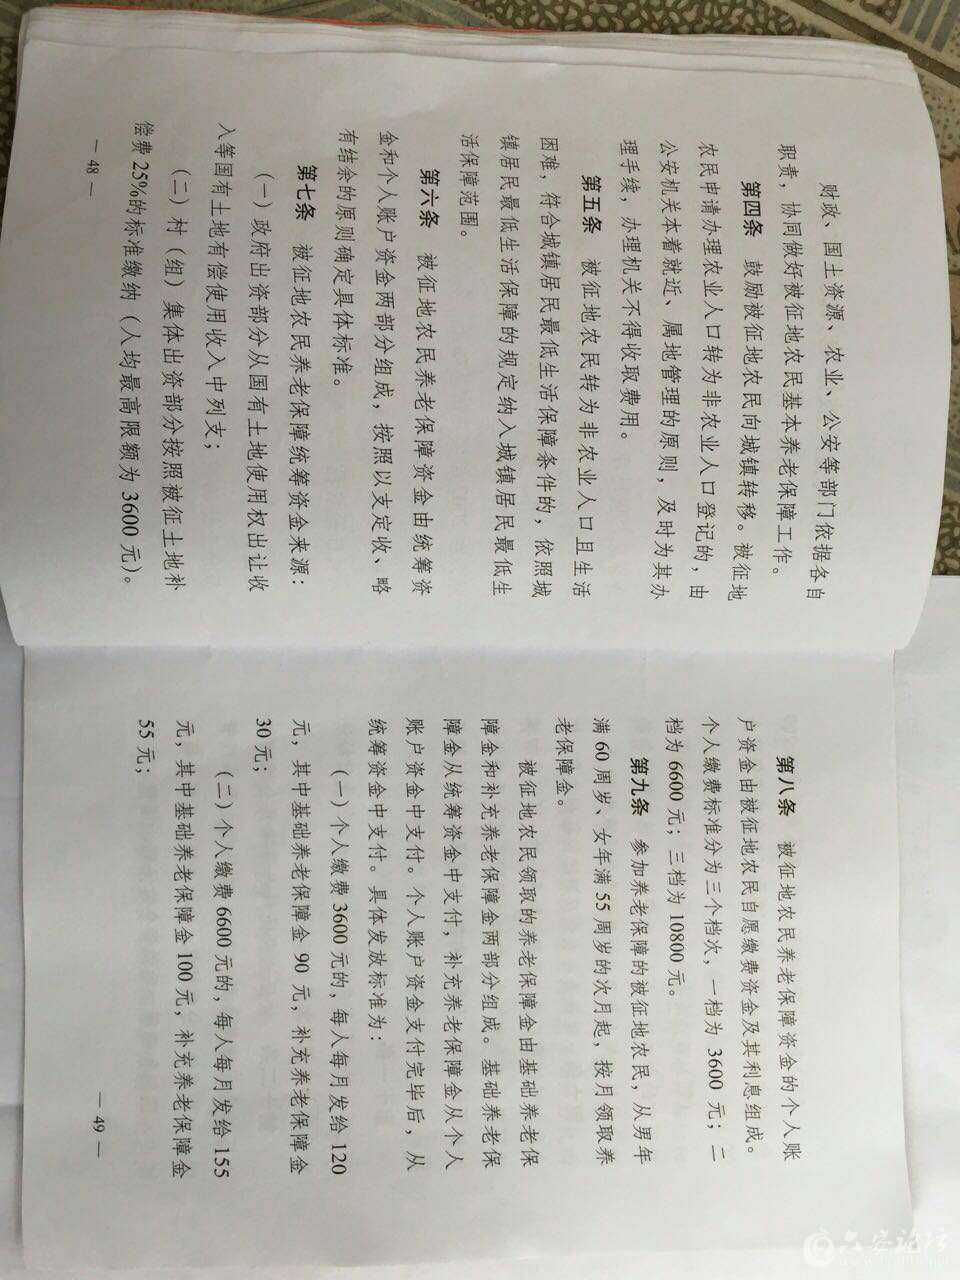 财政、国土资源、农业、公安等部门依据各自
职责，协同做好被征地农民基本养老保障工作。
第四条 鼓励被征地农民向城镇转移。被征地
农民申请办理农业人口转为非农业人口登记的，由
公安机关本着就近、属地管理的原则，及时为其办
理手续，办理机关不得收取费用。
第五条 被征地农民转为非农业人口且生活
困难，符合城镇居民最低生活保障条件的，依照城
镇居民最低生活保障的规定纳入城镇居民最低生
活保障范围。
第六条 被征地农民养老保障资金由统筹资
金和个人账户资金两部分组成，按照以支定收、略
有结余的原则确定具体标准。
第七条 被征地农民养老保障统筹资金来源：
（一）政府出资部分从国有土地使用权出让收
入等国有土地有偿使用收入中列支；
（二）村（组）集体出资部分按照被征土地补
偿费25%的标准缴纳（人均最高限额为3600元）。
— 48 —
第八条 被征地农民养老保障资金的个人账
户资金由被征地农民自愿缴费资金及其利息组成。
个人缴费标准分为三个档次，一档为3600元；二
档为6600元；三档为10800元。
第九条 参加养老保障的被征地农民，从男年
满60周岁、女年满55周岁的次月起，按月领取养
老保障金。
被征地农民领取的养老保障金由基础养老保
障金和补充养老保障金两部分组成。基础养老保
障金从统筹资金中支付，补充养老保障金从个人
账户资金中支付。个人账户资金支付完毕后，从
统筹资金中支付。具体发放标准为：
（一）个人缴费3600元的，每人每月发给120
元，其中基础养老保障金90元，补充养老保障金
30元；
（二）个人缴费6600元的，每人每月发给155
元，其中基础养老保障金100元，补充养老保障金
55元；
— 49 —
六安论坛